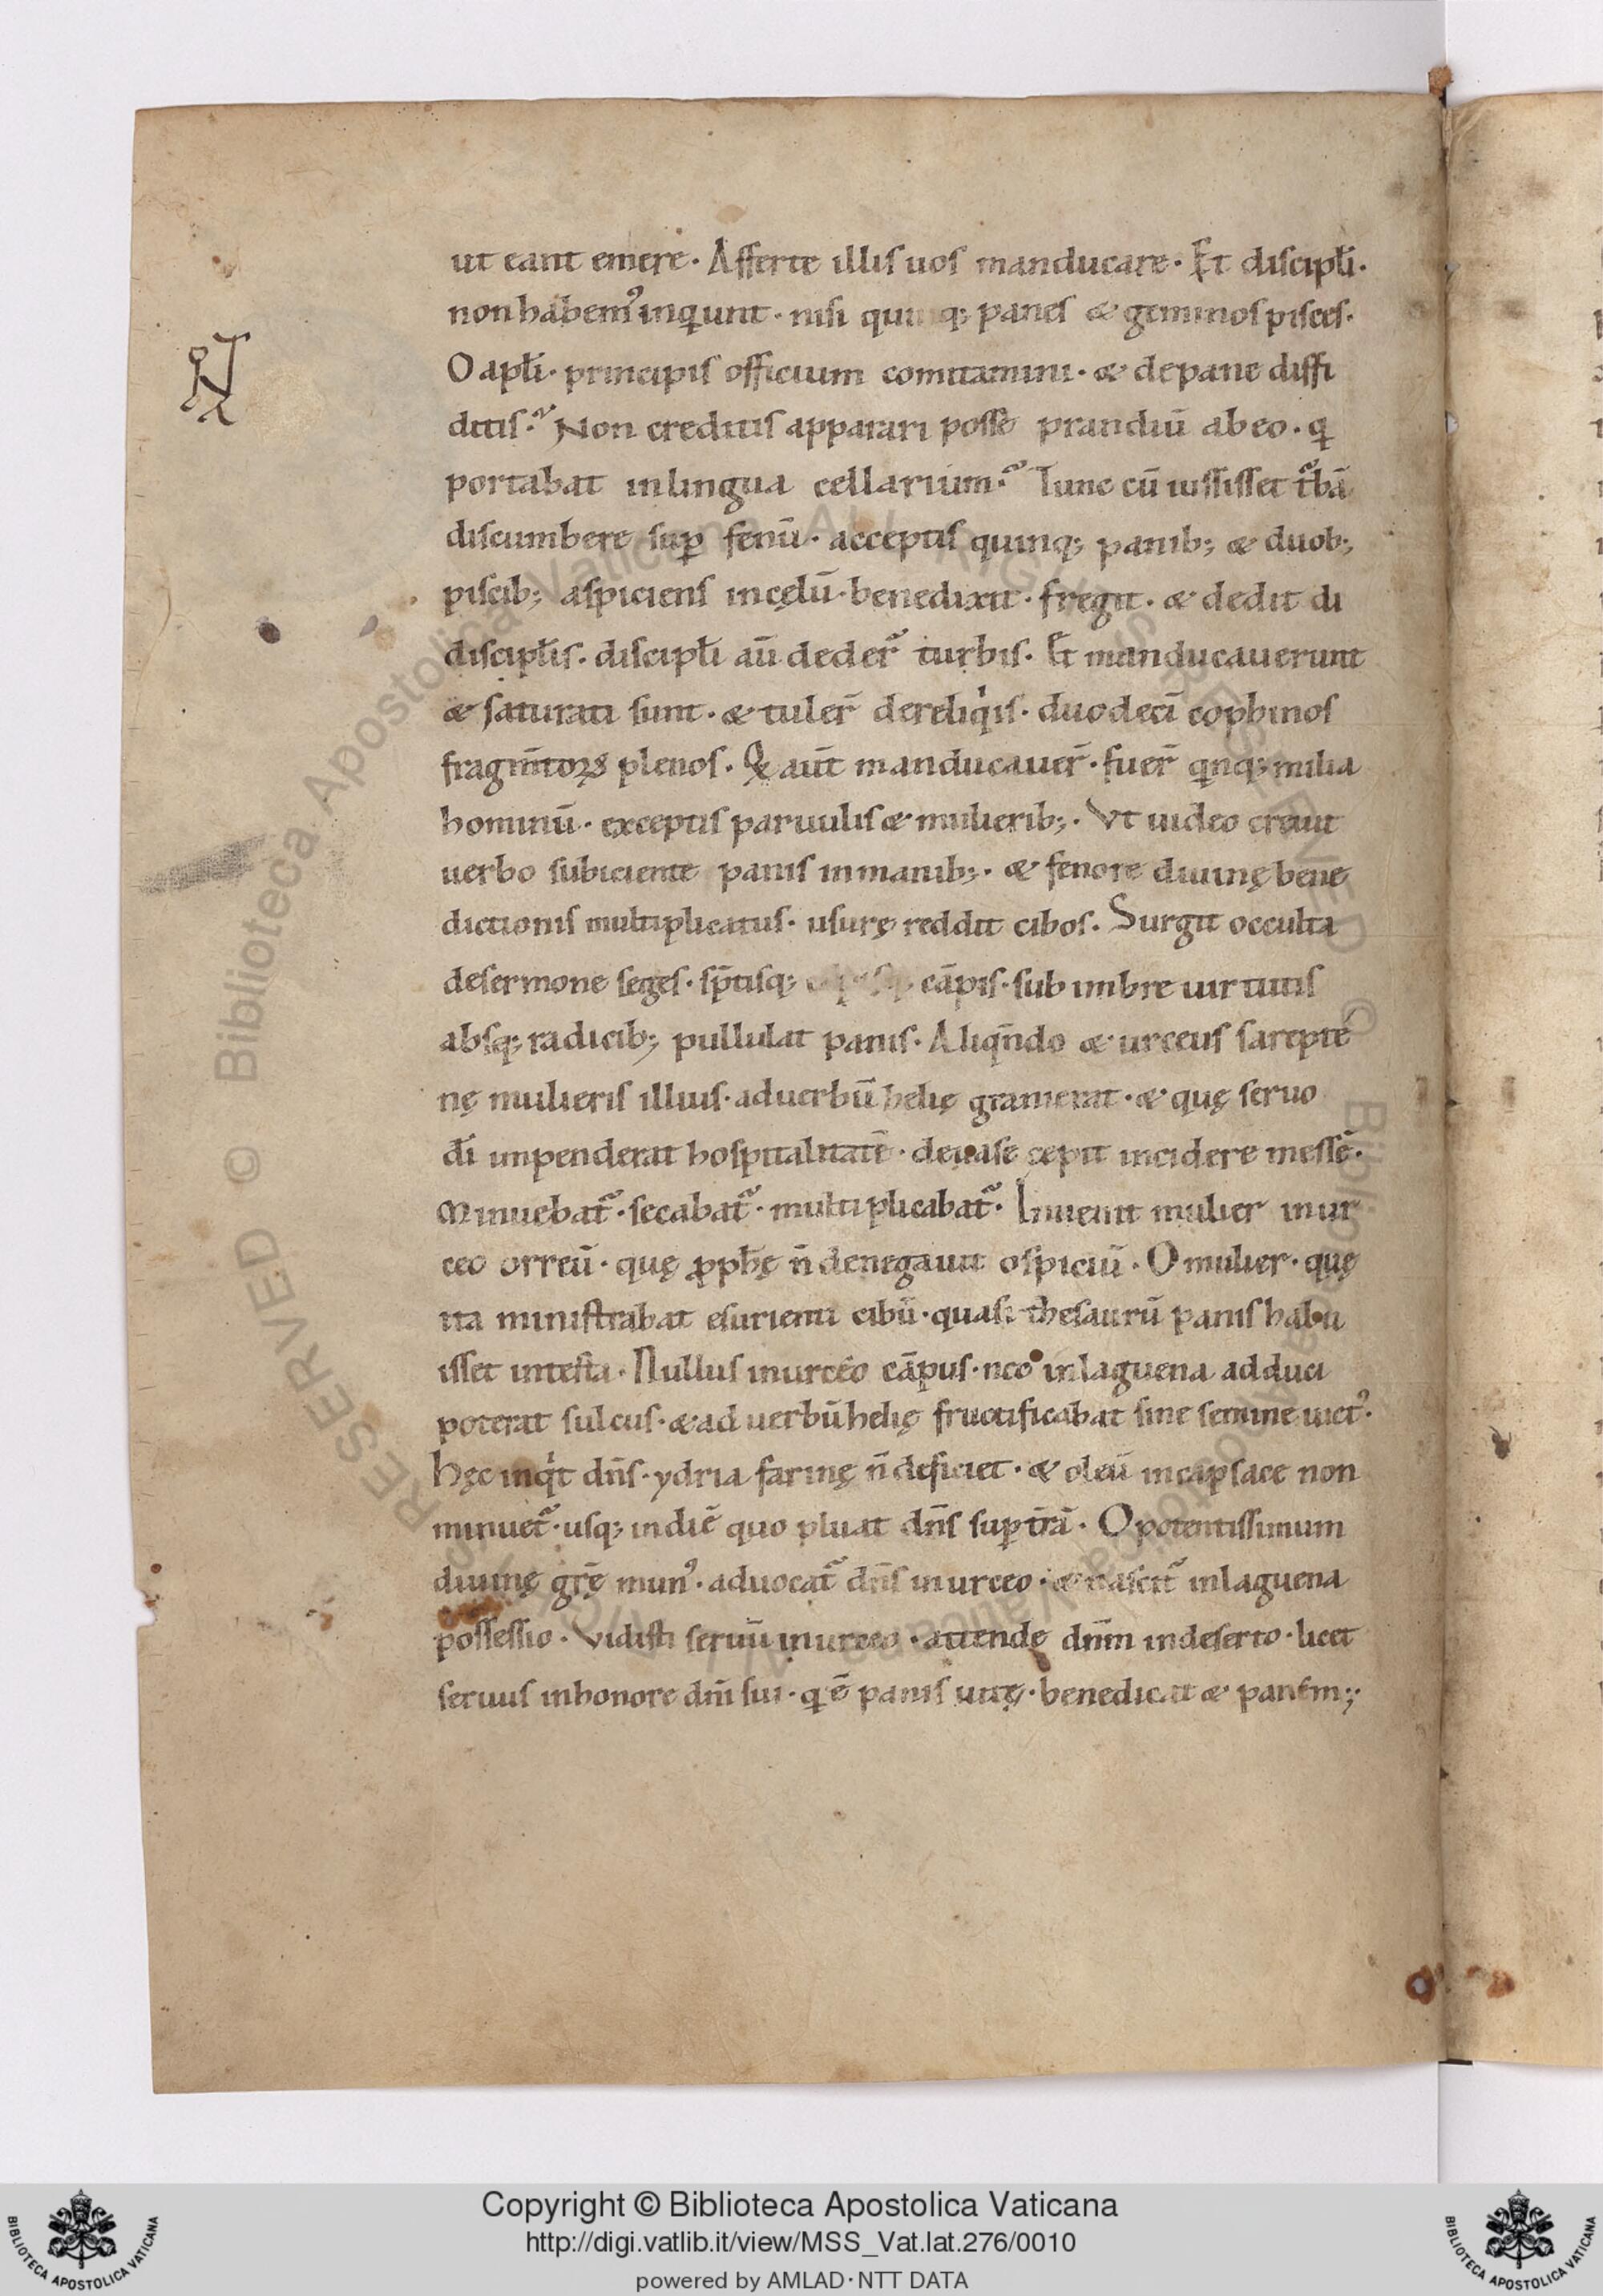 ut eant emere· Afferte illis uos manducare· Et discipl̄i·
non habemꝰ inqͥunt· nisi quinq; panes & geminos pisces·
O apl̄i· principis officium comitamini· & depane diffi
ditis· Non creditis apparari posse prandiū abeo· qͥ
portabat inlingua cellarium· Tunc cū iussisset t̃bā
discumbere sup̲ fenū· acceptis quinq; panib; & duob;
piscib; aspiciens incęlū· benedixit· fregit· & dedit di
discipl̄is· discipl̄i aū deder̄ turbis· Et manducauerunt
& saturati sunt· & tuler̄ dereliqͥis· duodecī cophinos
fragm̄toꝝ plenos· Qͥ aūt manducauer̄· fuer̄ qͥnq; milia
hominū· exceptis paruulis & mulierib;· Vt uideo creuit
uerbo subiciente panis inmanib;· & fenore diuinę bene
dictionis multiplicatus· usurę reddit cibos· Surgit occulta
desermone seges· sp̄tisq; cāpis· sub imbre uirtutis
absq; radicib; pullulat panis· Aliqn̄do & urceus sarepte
nę mulieris illius· aduerbū helię granierat· & quę seruo
dī impenderat hospitalitatē· deuase cepit incidere messē·
Minuebat̃· secabat̃· multiplicabat̃· Inuenit mulier inur
ceo orreū· quę ꝓph̄ę n̄ denegauit ospiciū· O mulier· quę
ita ministrabat esurienti cibū· quasi thesaurū panis habu
isset intesta· Nullus inurceo cāpus· nec inlaguena adduci
poterat sulcus· & ad uerbū helię fructificabat sine semine uictꝰ·
Hęc inqͥt dn̄s· ydria farinę n̄ deficiet· & oleū incapsace non
minuet̃· usq; indiē quo pluat dn̄s sup̲ t̄rā· O potentissimum
diuinę gr̄ę munꝰ· aduocat̃ dn̄s inurceo· & nascit̃ inlaguena
possessio· Vidisti seruū inurceo· attende dn̄m indeserto· licet
seruus inhonore dn̄i sui· qͥ ē panis uitę· benedicat & panem;·
Copyright © Biblioteca Apostolica Vaticana
http://digi.vatlib.it/view/MSS_Vat.lat.276/0010
powered by AMLAD·NTT DATA